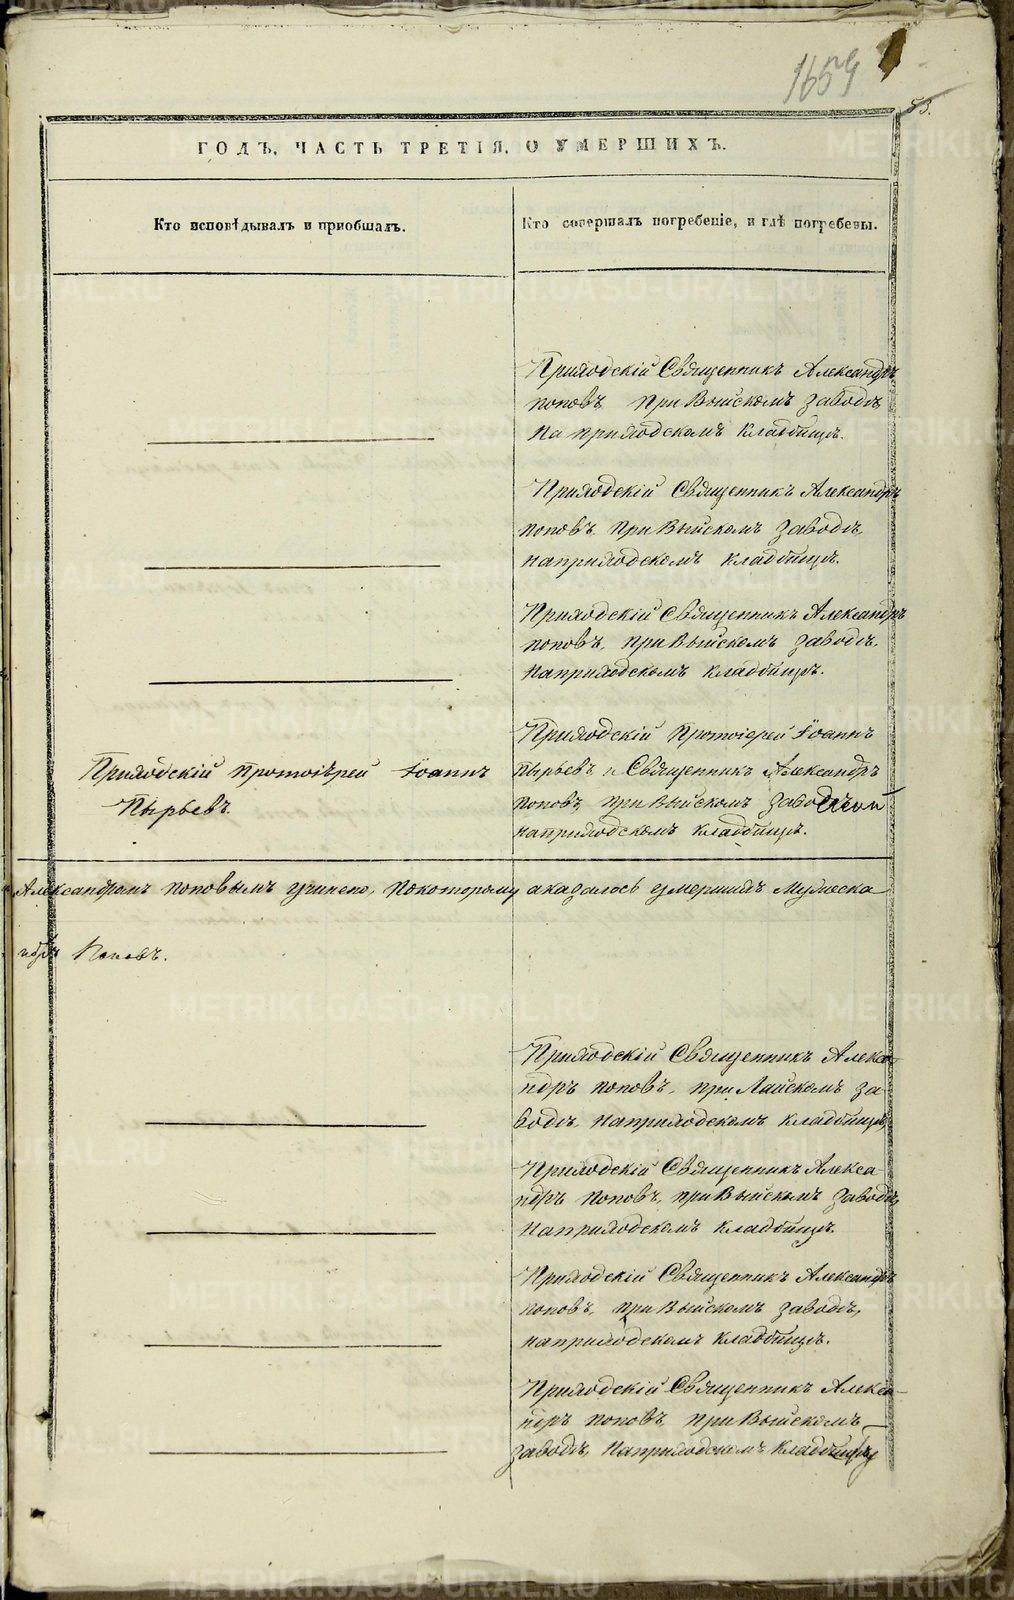 1659
53.
ГОДЪ, ЧАСТЬ ТРЕТІЯ, О УМЕРШИХЪ.
Кто исповѣдывалъ и приобщалъ.
Кто совершалъ погребеніе, и гдѣ погребены.
Приходскій Священникъ Александръ
поповъ при Выйскомъ заводѣ
На приходскомъ кладбищѣ.
Приходскій Священникъ Александръ
поповъ при Выйскомъ заводѣ,
на приходскомъ кладбищѣ.
Приходскій Священникъ Александръ
поповъ, при Выйскомъ заводѣ,
на приходскомъ кладбищѣ.
Приходскій протоіерей Іоаннъ
Пырьевъ.
Приходскій Протоіерей Іоаннъ
Пырьевъ и Священникъ Александръ
поповъ, при Выйскомъ заводѣ
на приходскомъ кладбищѣ.
Александромъ поповымъ учинено, по которому оказалось умершихъ Мужеска
ндръ Поповъ.
Приходскій Священникъ Алекса-
ндръ поповъ, при Лайскомъ за-
водѣ на приходскомъ кладбищѣ
Приходскій Священникъ Алекса-
ндръ поповъ, при Выйскомъ заводѣ,
на приходскомъ кладбищѣ.
Приходскій Священникъ Александръ
поповъ, при Выйскомъ заводѣ,
на приходскомъ кладбищѣ.
Приходскій Священникъ Алекса-
ндръ поповъ, при Выйскомъ
заводѣ, на приходскомъ кладбищѣ
METRIKI.GASO-URAL.RU